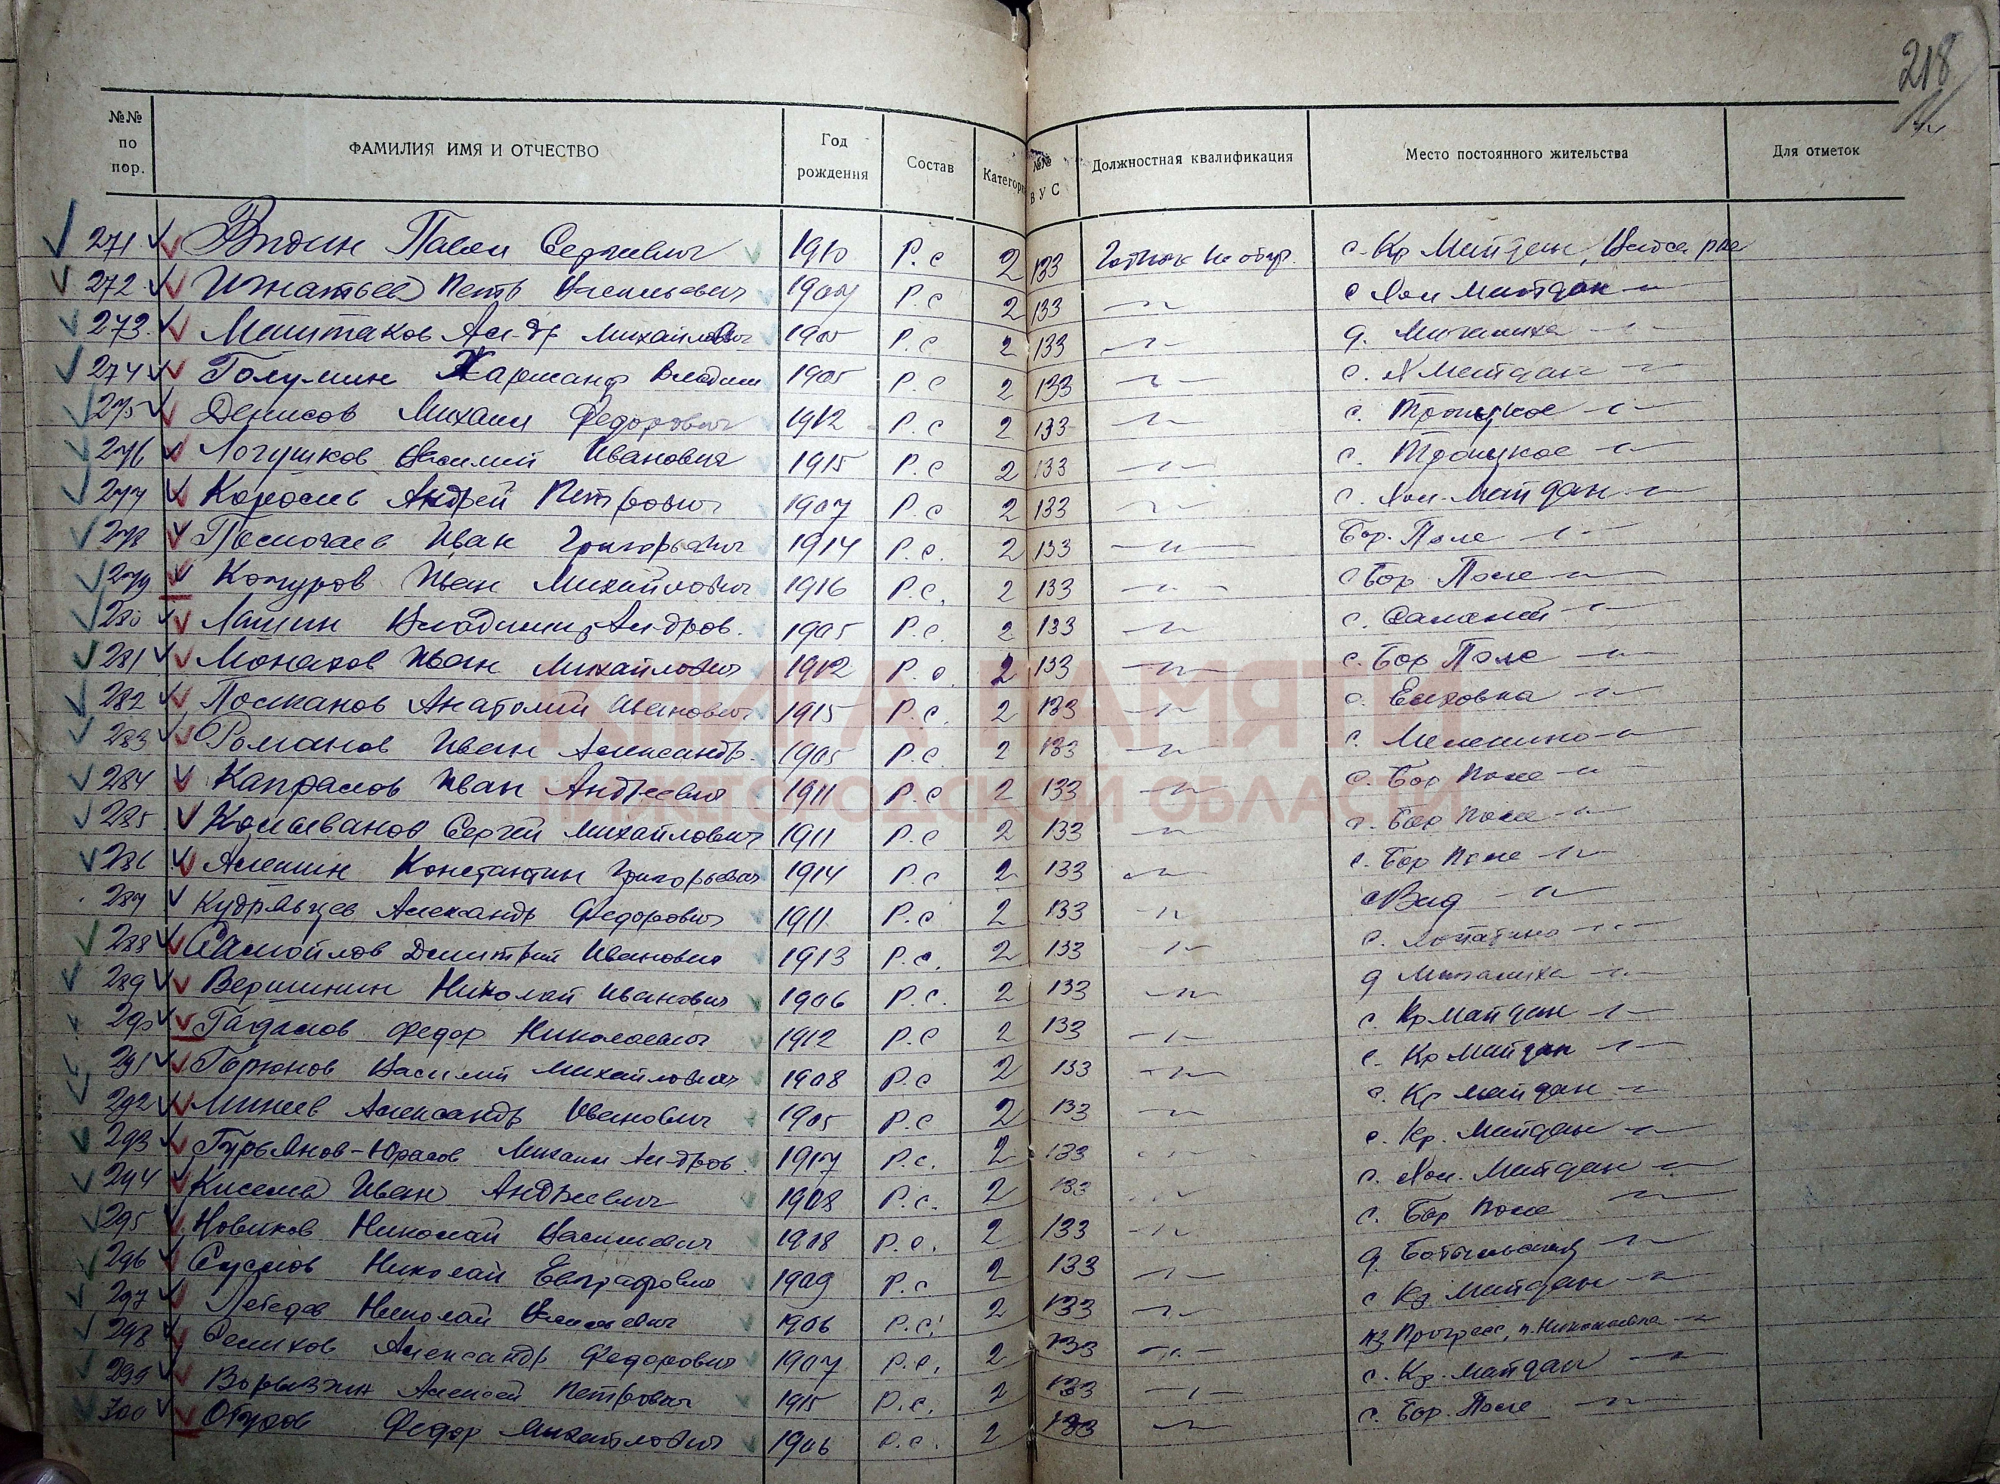 218
№№ по пор. ФАМИЛИЯ ИМЯ И ОТЧЕСТВО Год рождения Состав Категор №№ ВУС Должностная квалификация Место постоянного жительства Для отметок
271 Павел Сергеевич 1910 Р.с 2 133 с. Кр Майдан,
272 Игнатьев Петр Васильевич 1907 Р.с 2 133 с Хол Майдан
273 Маштаков Ал-др Михайлович 1905 Р.с 2 133 д.
274 Голумин Владим 1905 Р.с 2 133 с. Х Майдан
275 Денисов Михаил Федорович 1912 Р.с 2 133 с. Троицкое
276 Логушков Василий Иванович 1915 Р.с 2 133 с. Троицкое
277 Королев Андрей Петрович 1907 Р.с 2 133 с. Хол. Майдан
278 Иван Григорьевич 1914 Р.с. 2 133 Бор. Поле
279 Кочуров Иван Михайлович 1916 Р.с. 2 133 с Бор Поле
280 Лашин Владимир Андров. 1905 Р.с. 2 133 с.
281 Монахов Иван Михайлович 1912 Р.с. 2 133 с. Бор Поле
282 Постанов Анатолий Иванович 1915 Р.с. 2 133 с. Елховка
283 Романов Иван Александр. 1905 Р.с 2 133 с.
284 Капралов Иван Андреевич 1911 Р.с 2 133 с. Бор Поле
285 Колыванов Сергей Михайлович 1911 Р.с 2 133 с. Бор Поле
286 Алешин Константин Григорьевич 1914 Р.с 2 133 с. Бор Поле
287 Кудрявцев Александр Федорович 1911 Р.с 2 133 с Вад
288 Самойлов Дмитрий Иванович 1913 Р.с. 2 133 с. Лопатино
289 Вершинин Николай Иванович 1906 Р.с. 2 133 д
290 Гадалов Федор Николаевич 1912 Р.с 2 133 с. Кр Майдан
291 Горюнов Василий Михайлович 1908 Р.с 2 133 с. Кр Майдан
292 Минеев Александр Иванович 1905 Р.с 2 133 с. Кр Майдан
293 Гурьянов-Юрасов Михаил Ал-дров. 1917 Р.с. 2 133 с. Кр. Майдан
294 Киселев Иван Андреевич 1908 Р.с. 2 133 с. Хол. Майдан
295 Новиков Николай Васильевич 1908 Р.с. 2 133 с. Бор Поле
296 Суслов Николай Евграфович 1909 Р.с 2 133 д.
297 Лебедев Николай 1906 Р.с. 2 133 с Кр Майдан
298 Александр Федорович 1907 Р.с. 2 133 Прогресс,
299 Алексей Петрович 1915 Р.с. 2 133 с. Кр. Майдан
300 Обухов Федор Михайлович 1906 Р.с. 2 133 с. Бор. Поле
КНИГА ПАМЯТИ
НИЖЕГОРОДСКОЙ ОБЛАСТИ